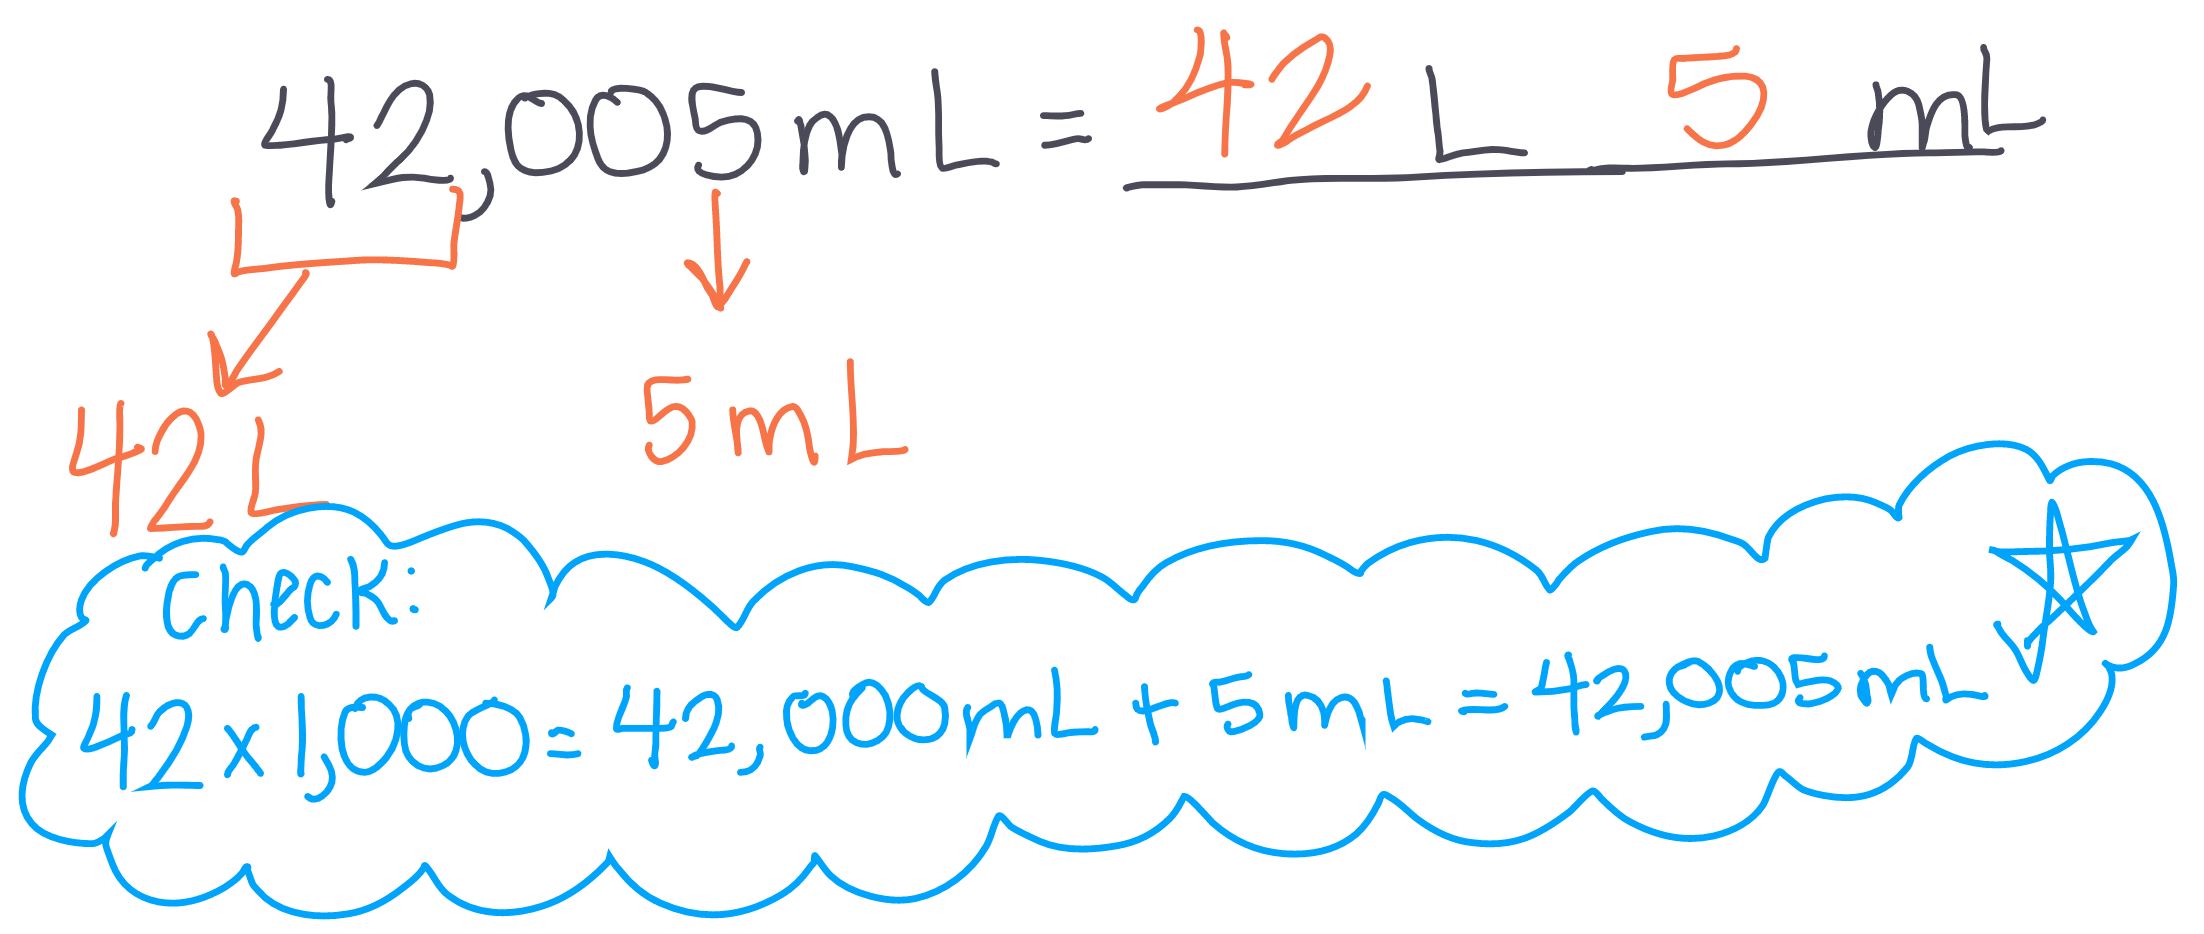 42,005mL = 42 L 5 mL
42 L
5mL
Check:
42 x 1,000 = 42,000mL + 5mL = 42,005mL